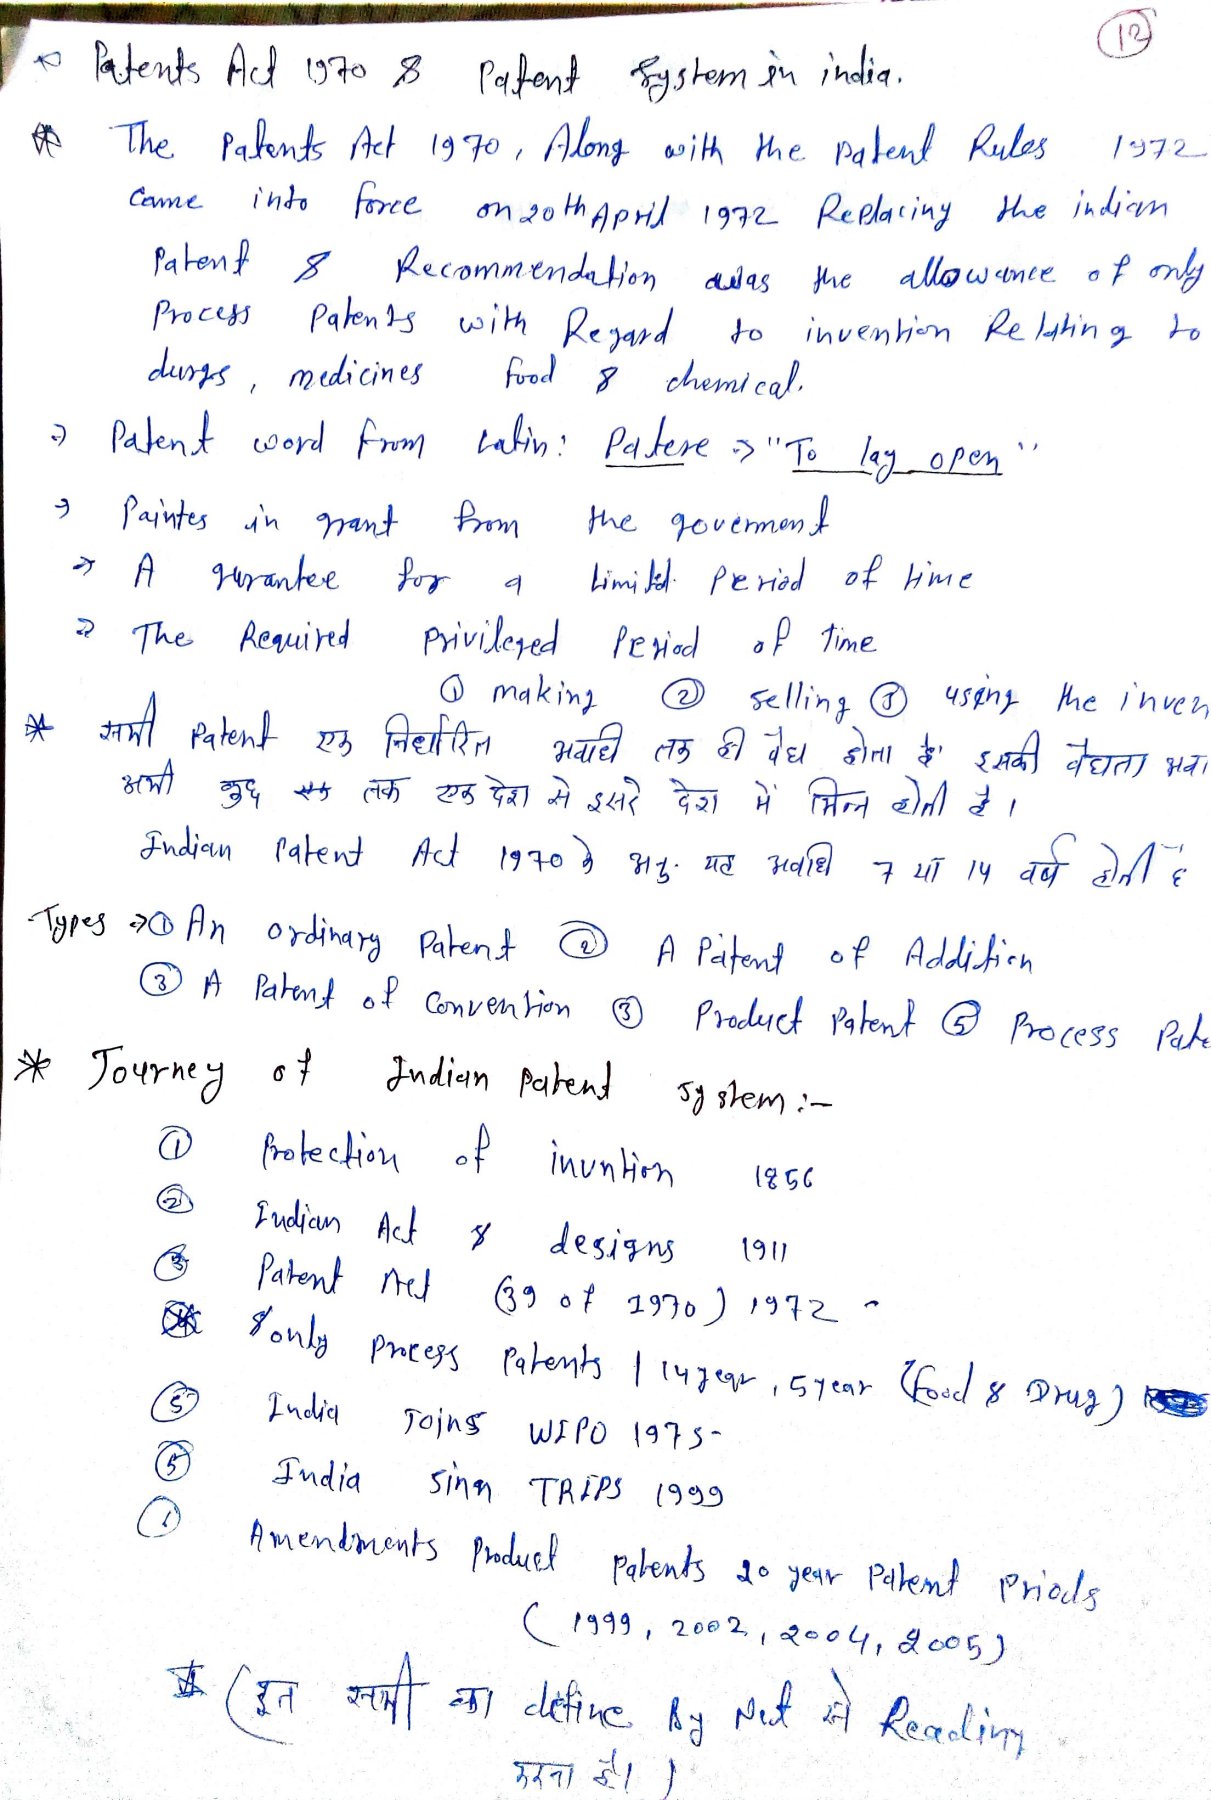 12
Patents Act 1970 & Patent System in india.
The Patents Act 1970, Along with the patent Rules 1972
came into force on 20th April 1972 Replacing the indian
Patent & Recommendation was the allowance of only
Process Patents with Regard to invention Relating to
durgs, medicines food & chemical.
=> Patent word from Latin: Patere => "To lay open"
Paintes in grant from the goverment
=> A gurantee for a Limited Period of time
=> The Required Privileged Period of time
① making ② selling ③ using the inven
* सभी Patent एक निर्धारित अवधि तक ही वैध होता है इसकी वैधता अवा
अभी कुछ तक एक देश से दूसरे देश में भिन्न होती है।
Indian Patent Act 1970 के अनु. यह अवधि 7 या 14 वर्ष होती है
Types => ① An ordinary Patent ② A Patent of Addition
③ A Patent of Convention ③ Product Patent ⑤ Process Pate
* Journey of Indian Patent System :-
① Protection of invntion 1856
② Indian Act & designs 1911
③ Patent Act (39 of 1970) 1972
& only Process Patents | 14 year, 5 year (food & Drug)
⑤ India Joins WIPO 1975
⑤ India Sinn TRIPS 1999
① Amendments Product Patents 20 year Patent Priods
(1999, 2002, 2004, 2005)
(इन सभी का define By Net से Reading
करना है।)